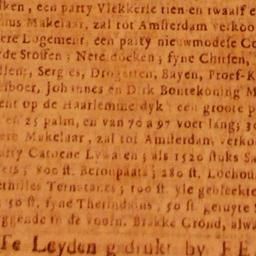 ken, een party Vlekkerle tien en twaalf e
nus Makelaar, zal tot Amsterdam verkoo
ere Logement, een party nieuwmodese Ge
de Stoffen; Nete doeken; fyne Chitsen,
Serges, Drogetten, Bayen, Proef-K
boer, Johannes en Dirk Bontekoning M
ent op de Haarlemmerdyk een groote p
en 25 palm, en van 70 a 97 voet lang; 3
ere Makelaar, zal tot Amsterdam, verko
arty Catoene Lywaten; als 1520 stuks Sa
800 st. Beronpaats; 280 st. Lochou
Ternatanes; 100 st. yle gebleekte
50 st. fyne Therindains; 50 st. geruyte
ggende in de voorn. Brakke Grond, alwa
Te Leyden gedrukt by FE